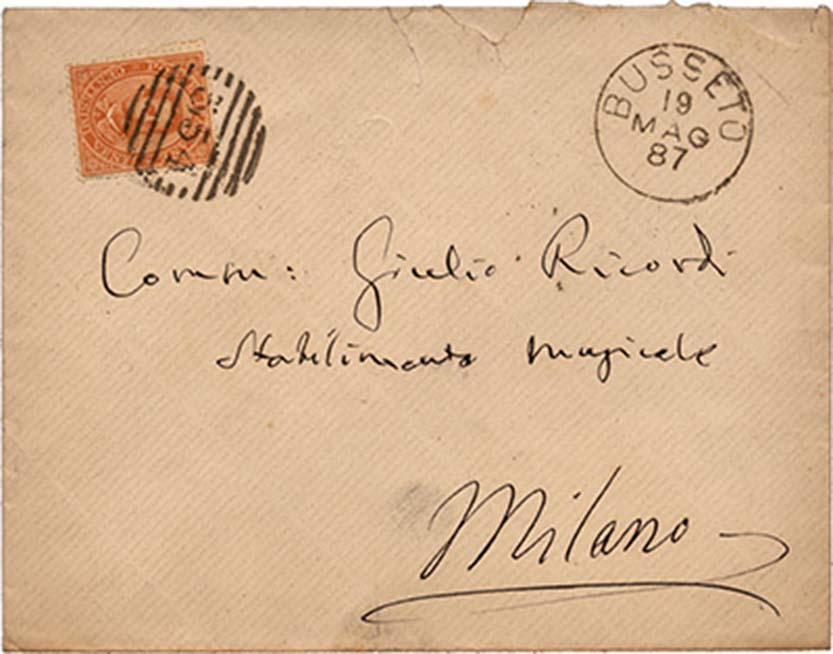 BUSSETO
19
MAG
87
Comm: Giulio Ricordi
Stabilimento musicale
Milano